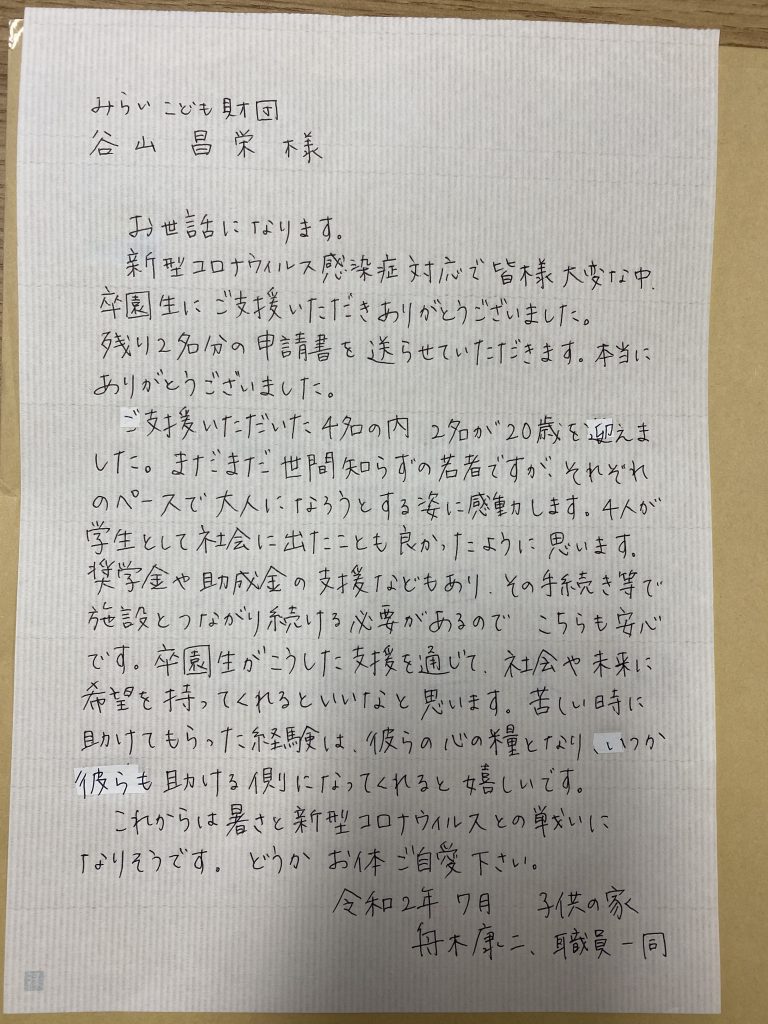 みらいこども財団
谷山 昌栄 様
お世話になります。
新型コロナウィルス感染症対応で皆様大変な中、
卒園生にご支援いただきありがとうございました。
残り2名分の申請書を送らせていただきます。本当に
ありがとうございました。
ご支援いただいた4名の内 2名が20歳を迎えま
した。まだまだ世間知らずの若者ですが、それぞれ
のペースで大人になろうとする姿に感動します。4人が
学生として社会に出たことも良かったように思います。
奨学金や助成金の支援などもあり、その手続き等で
施設とつながり続ける必要があるので こちらも安心
です。卒園生がこうした支援を通じて、社会や未来に
希望を持ってくれるといいなと思います。苦しい時に
助けてもらった経験は、彼らの心の糧となり、いつか
彼らも助ける側になってくれると嬉しいです。
これからは暑さと新型コロナウィルスとの戦いに
なりそうです。どうかお体ご自愛下さい。
令和2年 7月 子供の家
舟木康二、職員一同